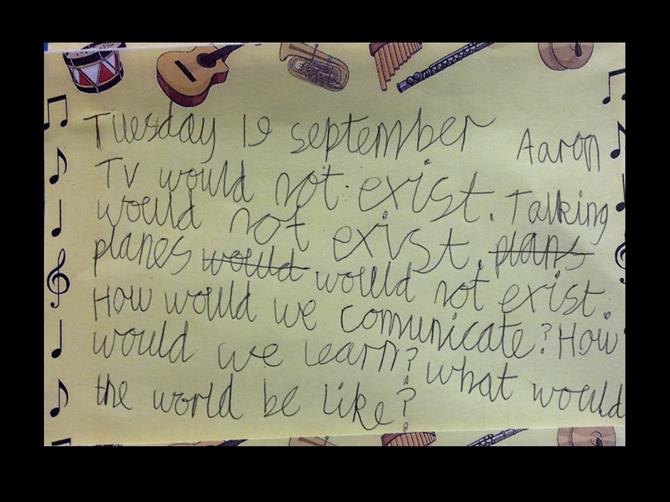 Tuesday 19 september Aaron
TV would not exist. Talking
would not exist. plans
planes would would not exist.
How would we comunicate? How
would we learn? what would
the world be like?